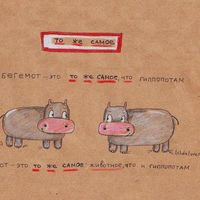 ТО ЖЕ САМОЕ
БЕГЕМОТ – ЭТО ТО ЖЕ САМОЕ, ЧТО ГИППОПОТАМ
ОТ – ЭТО ТО ЖЕ САМОЕ ЖИВОТНОЕ, ЧТО И ГИППОПОТАМ